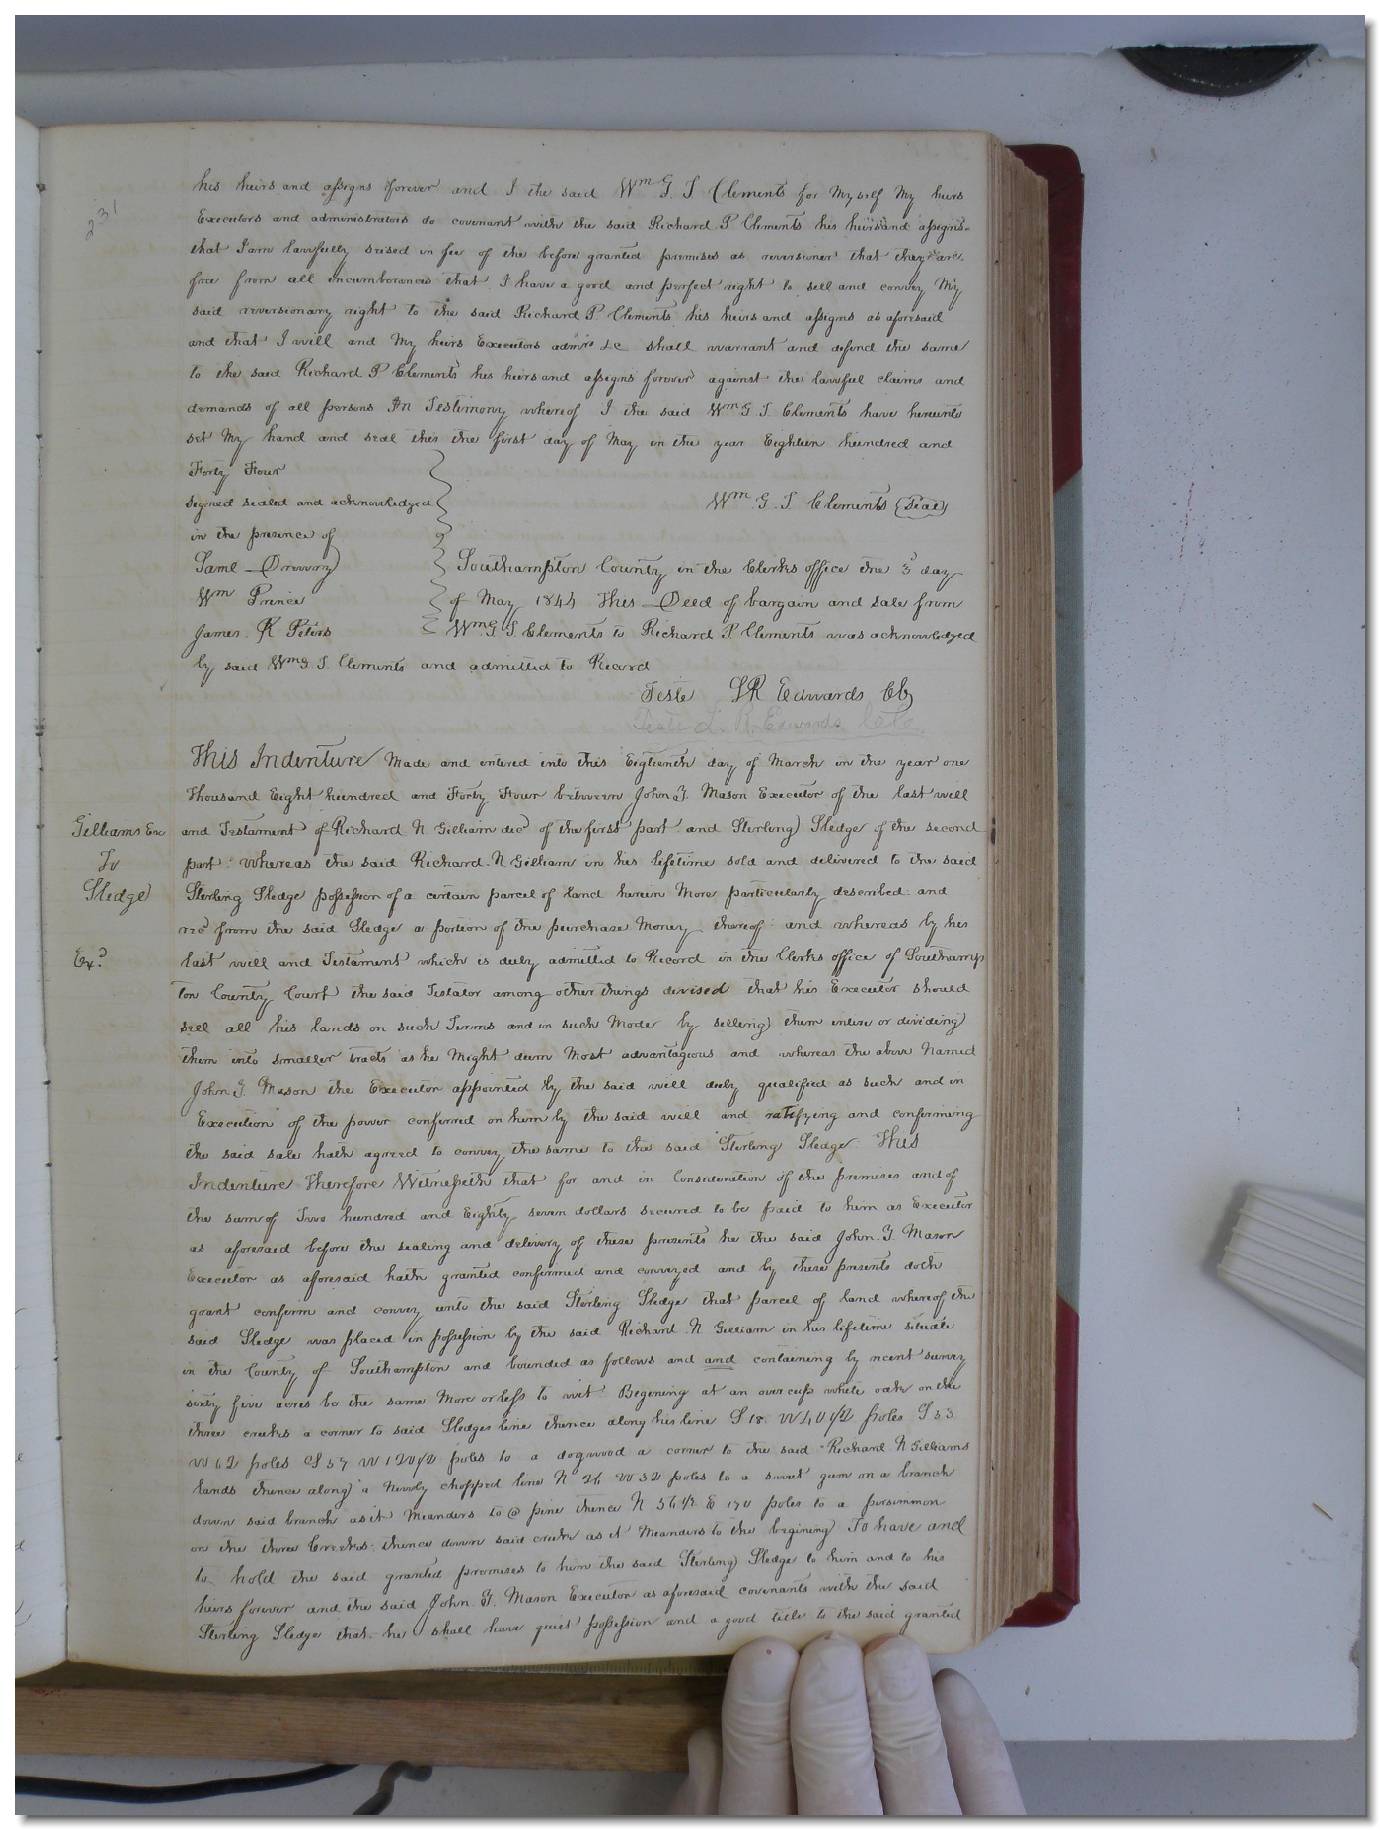 231
his heirs and assigns forever and I the said Wm G. S Clements for My self My heirs
Executors and administrators do covenant with the said Richard P Clements his heirs and assigns
that I am lawfully seised in fee of the before granted premises as reversioner that they are
free from all incumborances that I have a good and perfect right to sell and convey My
said reversionary right to the said Richard P Clements his heirs and assigns as aforesaid
and that I will and My heirs Executors admrs &c shall warrant and defend the same
to the said Richard P Clements his heirs and assigns forever against the lawful claims and
demands of all persons In Testimony whereof I the said Wm G S. Clements have hereunto
set My hand and seal this the first day of May in the year Eighteen hundred and
Forty Four
signed sealed and acknowledged
Wm G. S. Clements (Seal)
in the presence of
Saml Drewry
Southampton County in the Clerks office the 3 day
Wm Prince
of May 1844 This Deed of bargain and sale from
James. R Peters
Wm G S. Clements to Richard P Clements was acknowledged
by said Wm G. S. Clements and admitted to Record
Teste LR Edwards Clk
Teste L. R. Edwards
This Indenture Made and entered into this Eighteenth day of March in the year one
Thousand Eight hundred and Forty Four between John G. Mason Executor of the last will
Gilliams Ex
and Testament of Richard N Gilliam decd of the first part and Sterling Sledge of the second
To
part: Whereas the said Richard. N Gilliam in his lifetime sold and delivered to the said
Sledge
Sterling Sledge possession of a certain parcel of land herein More particularly described and
recd from the said Sledge a portion of the purchase Money thereof: and whereas by his
Exd
last will and Testament which is duly admitted to Record in the Clerks office of Southamp
ton County Court the said Testator among other things devised that his Executor should
sell all his lands on such Terms and in such Mode by selling them entire or dividing
them into smaller tracts as he Might deem Most advantagious and whereas the above Named
John G. Mason the Executor appointed by the said will duly qualified as such and in
Execution of the power conferred on him by the said will and ratifying and confirming
the said sale hath agreed to convey the same to the said Sterling Sledge This
Indenture Therefore Witnesseth that for and in Consideration of the premises and of
the sum of Two hundred and Eighty seven dollars secured to be paid to him as Executor
as aforesaid before the sealing and delivery of these presents he the said John. G. Mason
Executor as aforesaid hath granted confirmed and conveyed and by these presents doth
grant confirm and convey unto the said Sterling Sledge that parcel of land whereof the
said Sledge was placed in possession by the said Richard. N Gilliam in his lifetime situate
in the County of Southampton and bounded as follows and and containing by recent survey
sixty five acres be the same More or less to wit Begening at an over cup white oak on the
three creeks a corner to said Sledges line thence along his line S 18. W 40 1/2 poles S 53
W 62 poles S 57 W 120 1/2 poles to a dogwood a corner to the said Richard N Gilliams
lands thence along a Newly chopped line N 26 W 32 poles to a sweet gum on a branch
down said branch as it Meanders to @ pine thence N 56 1/2 E 170 poles to a persimmon
on the three Creeks: thence down said creek as it Meanders to the begining To have and
to hold the said granted premises to him the said Sterling Sledge to him and to his
heirs forever and the said John. G. Mason Executor as aforesaid covenants with the said
Sterling Sledge that he shall have quiet possession and a good title to the said granted